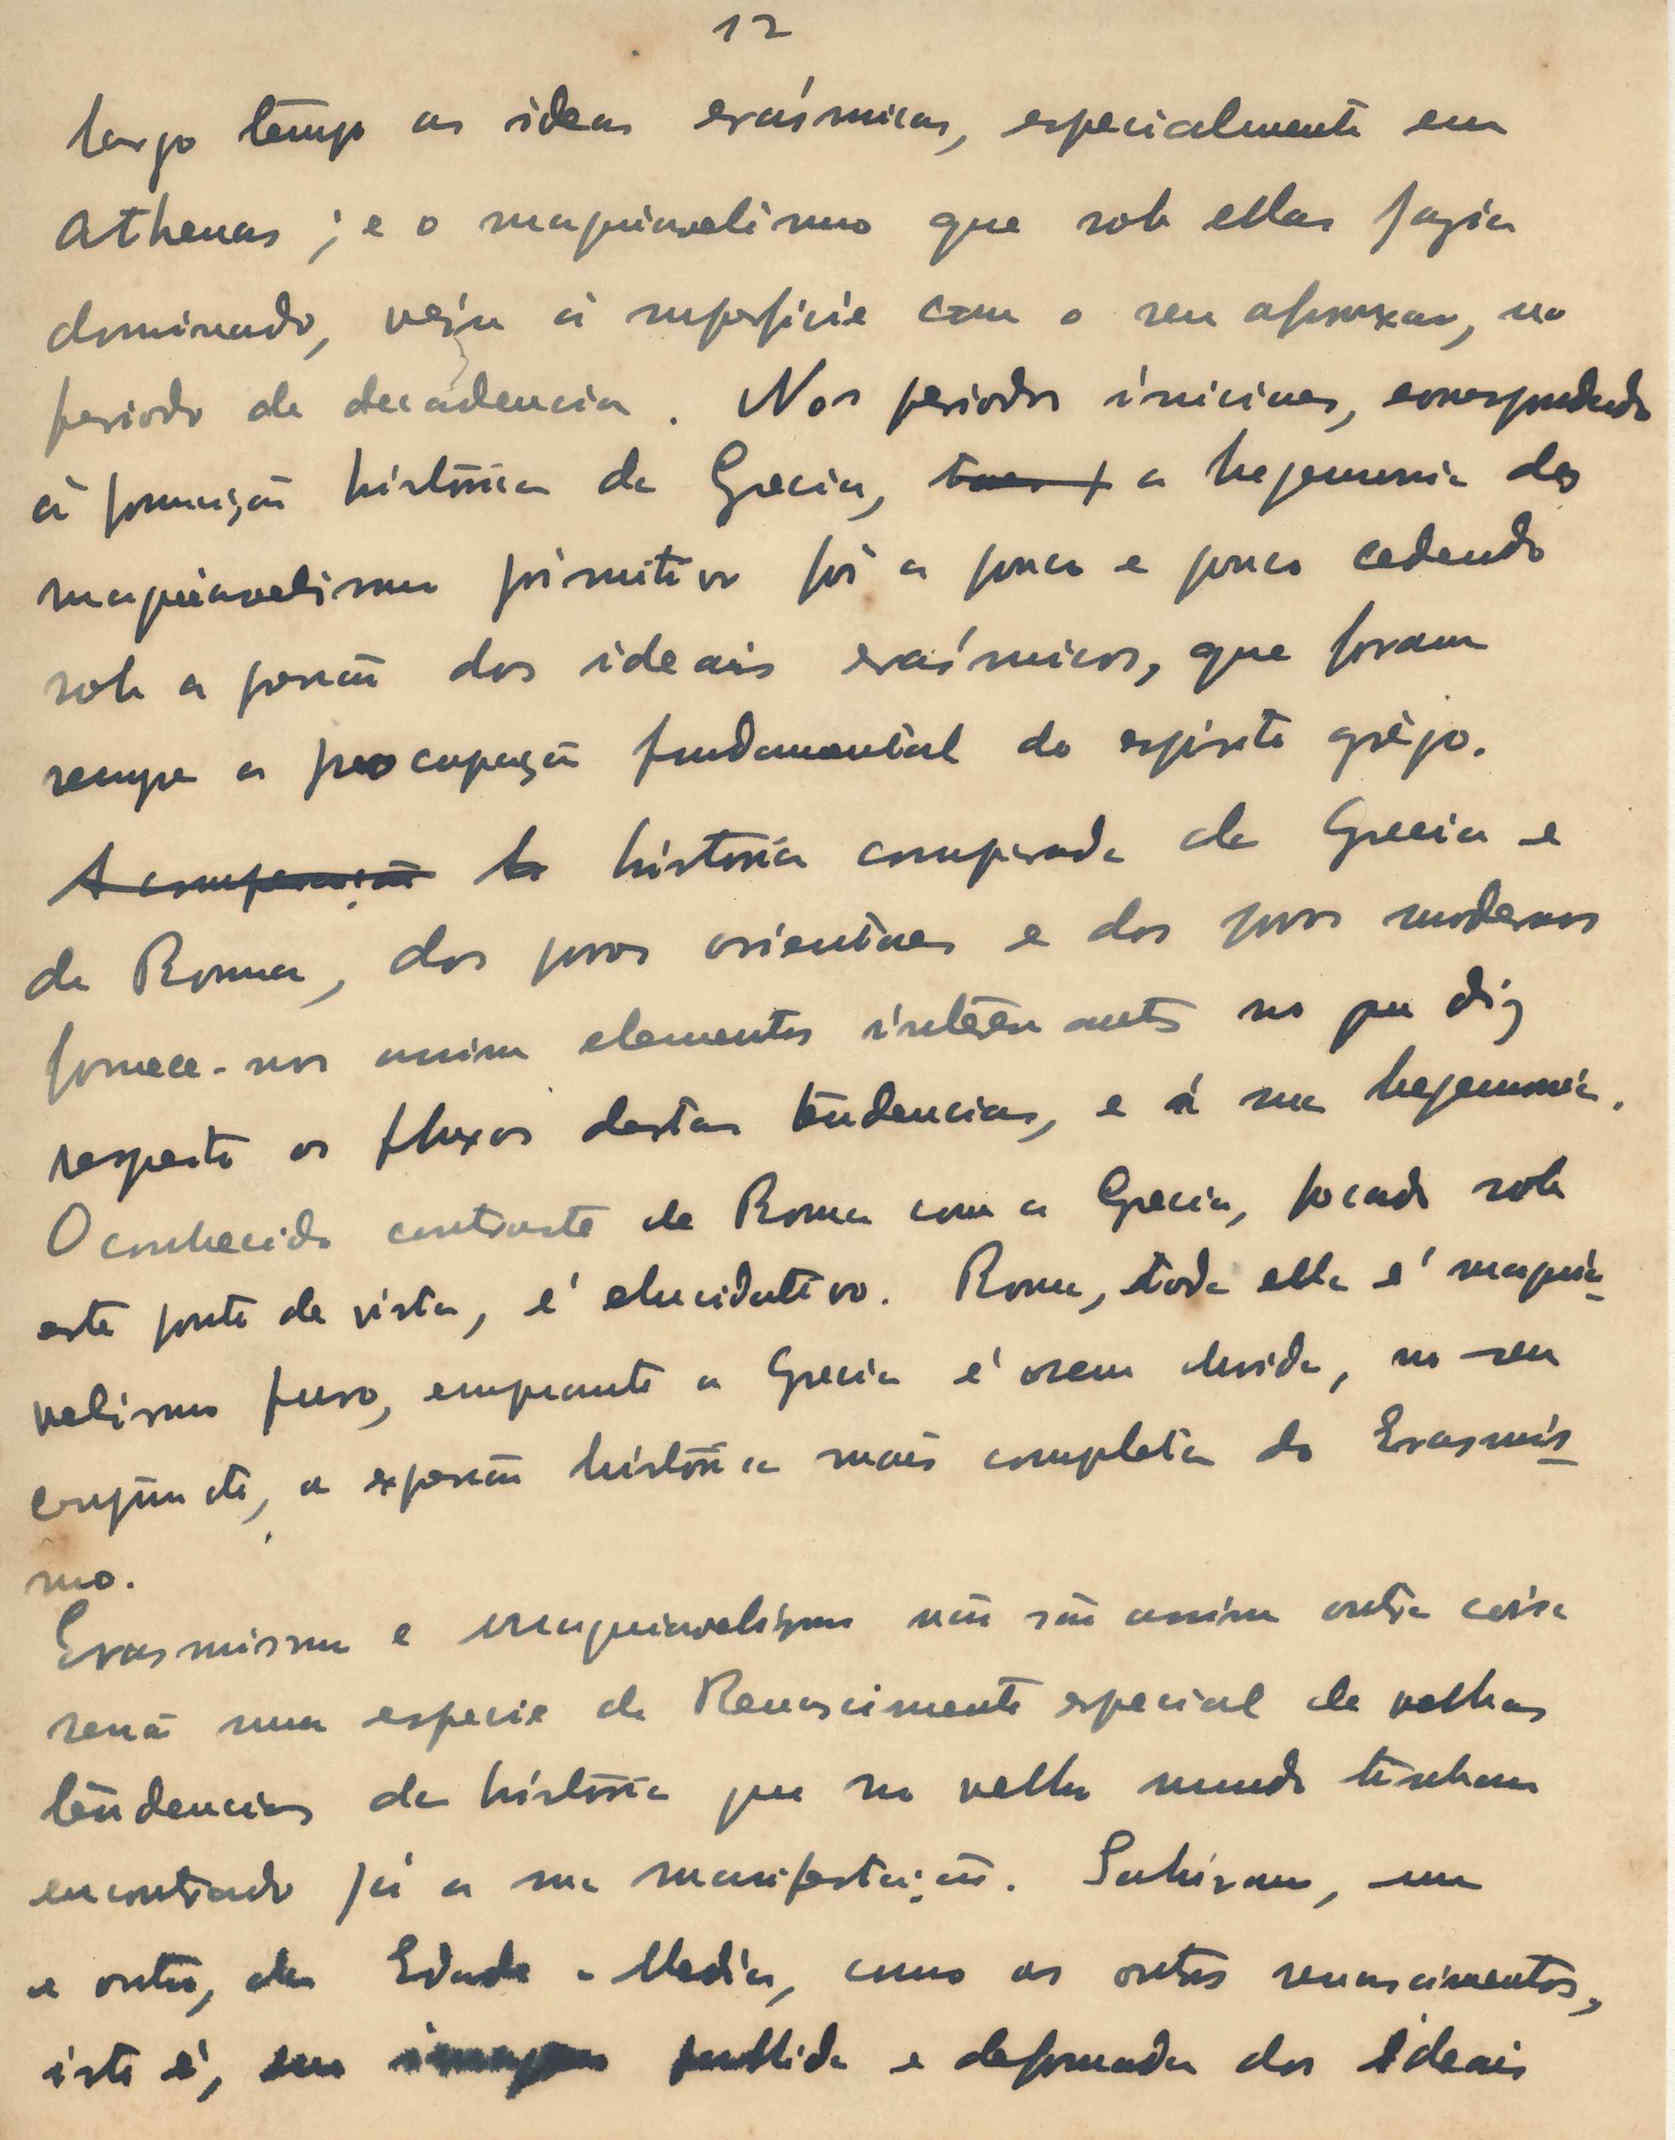 12
largo tempo as ideas erásmicas, especialmente em
Athenas; e o maquiavelismo que sob ellas jazia
dominado, veiu á superficie com o seu afrouxar, no
periodo de decadencia. Nos periodos iniciaes, correspondendo
á formação histórica da Grecia, a hegemonia do
maquiavelismo primitivo foi a pouco e pouco cedendo
sob a pressão dos ideais erásmicos, que foram
sempre a preocupação fundamental do espirito grêgo.
A comparação A história comparada da Grecia e
de Roma, dos povos orientaes e dos povos modernos
fornece-nos assim elementos interessantes no que diz
respeito os fluxos destas tendencias, e á sua hegemonia.
O conhecido contraste de Roma com a Grecia, focado sob
este ponto de vista, é elucidativo. Roma, toda ella é maquia-
velismo puro, emquanto a Grecia é sem duvida, no seu
conjuncto, a expressão histórica mais completa do Erasmis-
mo.
Erasmismo e maquiavelismo não são assim outra coisa
senão uma especie de Renascimento especial de velhas
tendencias da história que no velho mundo tinham
encontrado já a sua manifestação. Sahiram, um
e outro, da Edade-Media, como os outros renascimentos,
isto é, em imagem pallida e deformada dos ideais